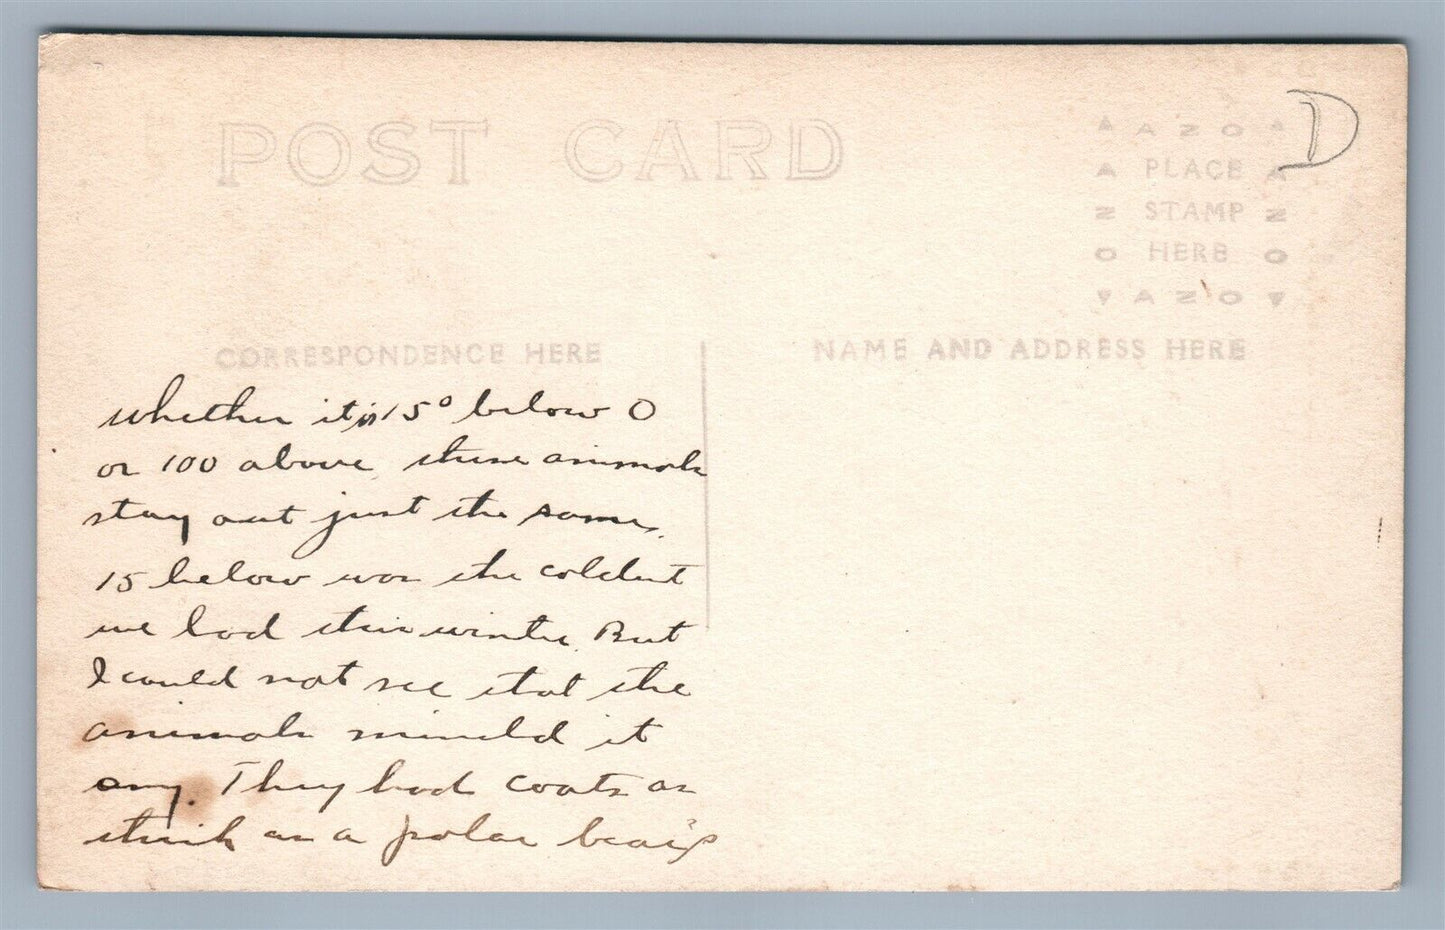 POST CARD
D
AZO
PLACE
STAMP
HERE
AZO
AZO
AZO
CORRESPONDENCE HERE
NAME AND ADDRESS HERE
whether it is 15° below 0
or 100 above these animals
stay out just the same.
15 below was the coldest
we had this winter. But
I could not see that the
animals minded it
any. They had coats as
thick as a polar bear's